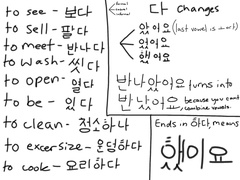 to see - 보다
to sell - 팔다
to meet - 반나다
to wash - 씻다
to open - 열다
to be - 있다
to clean - 청소하나
to excersize - 운덩하다
to cook - 요리하다
다 changes
았어요 (last vowel is ㅏ or ㅗ)
었어요
했어요
반나았어요 turns into
반났어요 because you can combine vowels.
Ends in 하다, means
했이요